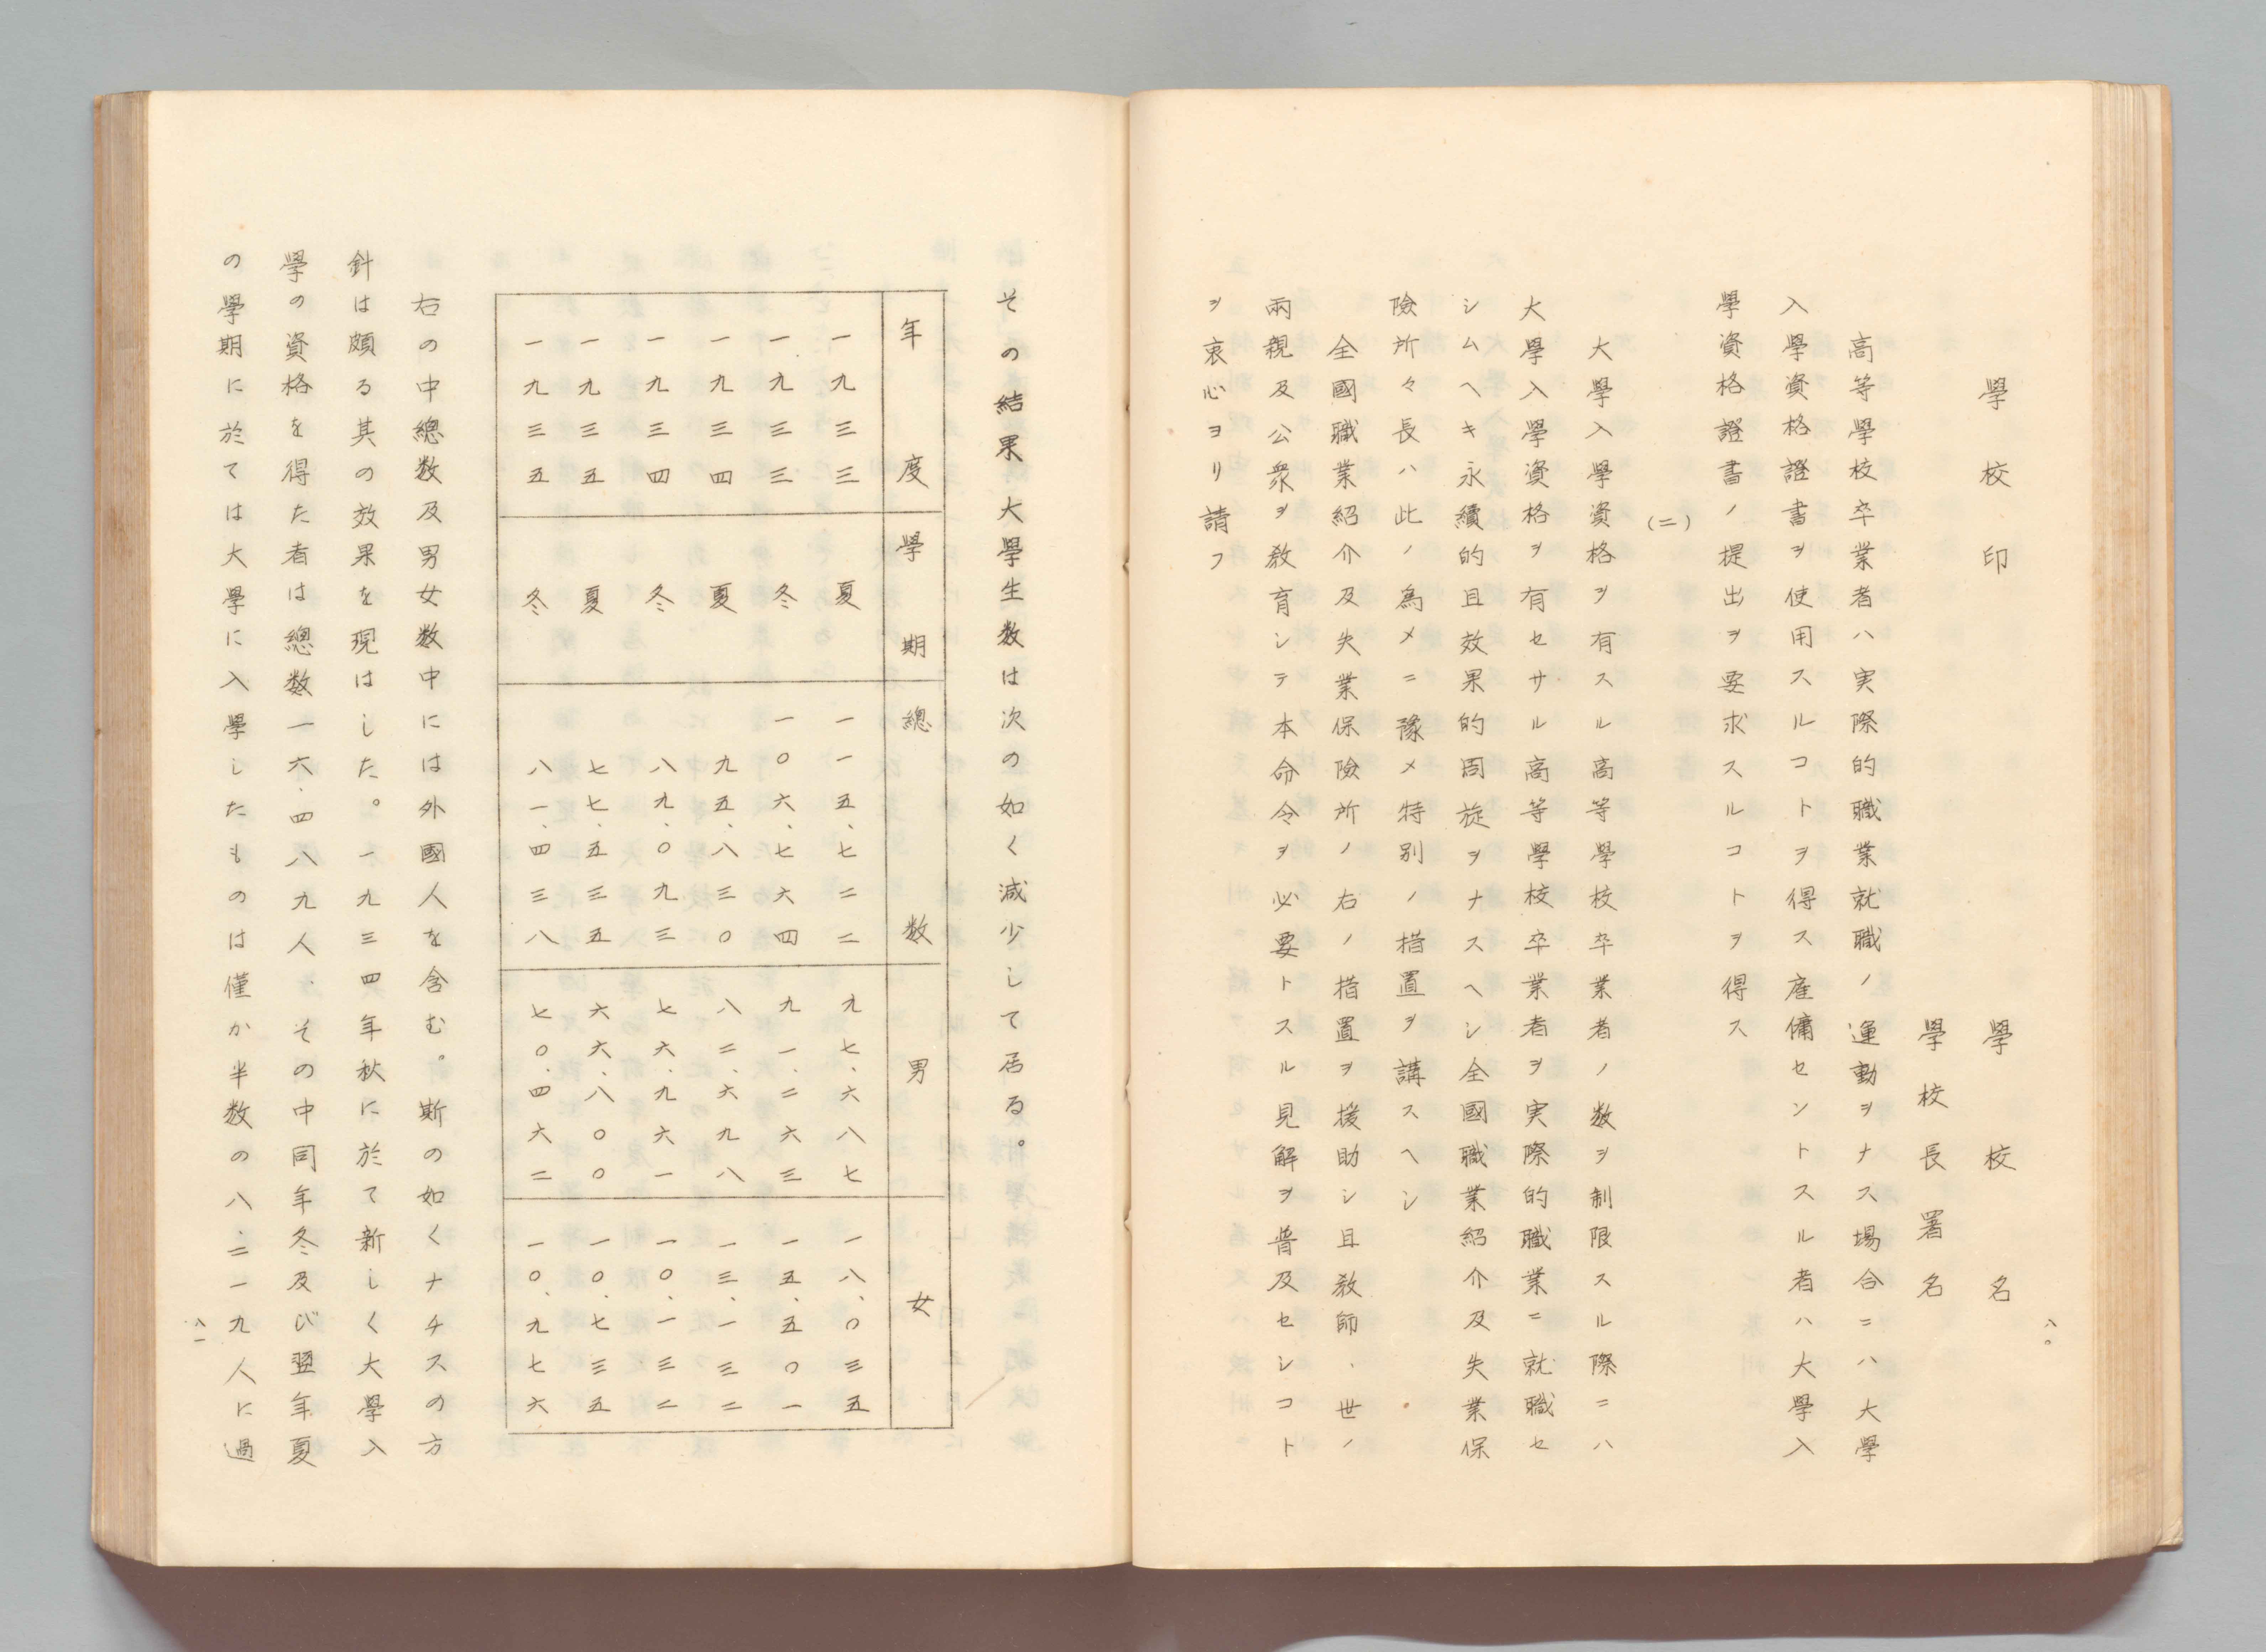 八〇
學校印　學校名
學校長署名
高等學校卒業者ハ実際的職業就職ノ運動ヲナス場合ニハ大學
入學資格證書ヲ使用スルコトヲ得ス雇傭セントスル者ハ大學入
學資格證書ノ提出ヲ要求スルコトヲ得ス
(二)
大學入學資格ヲ有スル高等學校卒業者ノ数ヲ制限スル際ニハ
大學入學資格ヲ有セサル高等學校卒業者ヲ実際的職業ニ就職セ
シムヘキ永續的且效果的周旋ヲナスヘシ全國職業紹介及失業保
險所々長ハ此ノ為メニ豫メ特別ノ措置ヲ講スヘシ
全國職業紹介及失業保險所ノ右ノ措置ヲ援助シ且敎師、世ノ
兩親及公衆ヲ敎育シテ本命令ヲ必要トスル見解ヲ普及センコト
ヲ衷心ヨリ請フ
その結果大學生数は次の如く減少して居る。
年度　學期　總数　男　女
一九三三　夏　一一五、七二二　九七、六八七　一八、〇三五
一九三三　冬　一〇六、七六四　九一、二六三　一五、五〇一
一九三四　夏　九五、八三〇　八二、六九八　一三、一三二
一九三四　冬　八九、〇九三　七六、九六一　一〇、一三二
一九三五　夏　七七、五三五　六六、八〇〇　一〇、七三五
一九三五　冬　八一、四三八　七〇、四六二　一〇、九七六
右の中總数及男女数中には外國人を含む。斯の如くナチスの方
針は頗る其の效果を現はした。一九三四年秋に於て新しく大學入
學の資格を得た者は總数一六、四八九人、その中同年冬及び翌年夏
の學期に於ては大學に入學したものは僅か半数の八、二一九人に過
八一